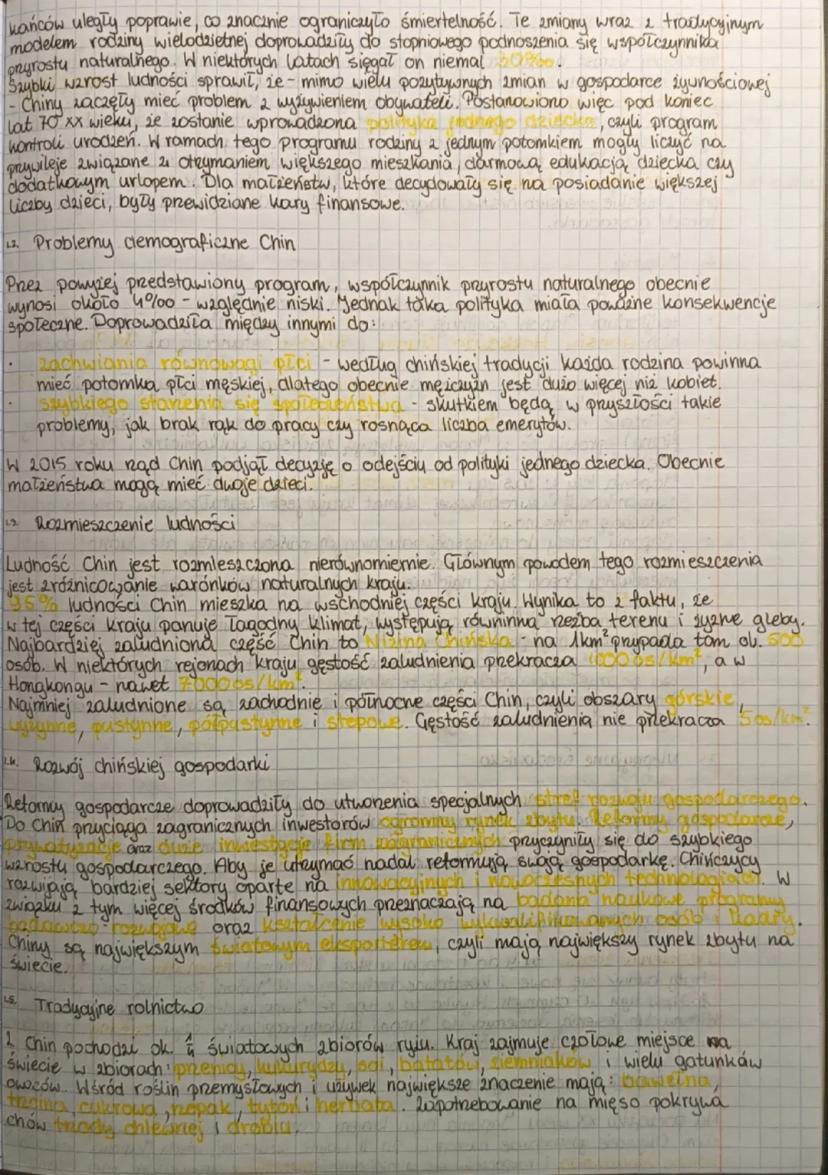 kańców uległy poprawie, co znacznie ograniczyło śmiertelność. Te zmiany wraz z tradycyjnym
modelem rodziny wielodzietnej doprowadziły do stopniowego podnoszenia się współczynnika
przyrostu naturalnego. W niektórych latach sięgał on niemal 30‰.
Szybki wzrost ludności sprawił, że - mimo wielu pozytywnych zmian w gospodarce żywnościowej
- Chiny zaczęły mieć problem z wyżywieniem obywateli. Postanowiono więc pod koniec
lat 70 XX wieku, że zostanie wprowadzona polityka jednego dziecka, czyli program
kontroli urodzeń. W ramach tego programu rodziny z jednym potomkiem mogły liczyć na
przywileje związane z otrzymaniem większego mieszkania, darmową edukacją dziecka czy
dodatkowym urlopem. Dla małżeństw, które decydowały się na posiadanie większej
liczby dzieci, były przewidziane kary finansowe.
1.2. Problemy demograficzne Chin
Przez powyżej przedstawiony program, współczynnik przyrostu naturalnego obecnie
wynosi około 4‰ - względnie niski. Jednak taka polityka miała poważne konsekwencje
społeczne. Doprowadziła między innymi do:
· zachwiania równowagi płci - według chińskiej tradycji każda rodzina powinna
mieć potomka płci męskiej, dlatego obecnie mężczyzn jest dużo więcej niż kobiet.
· szybkiego starzenia się społeczeństwa - skutkiem będą w przyszłości takie
problemy, jak brak rąk do pracy czy rosnąca liczba emerytów.
W 2015 roku rząd Chin podjął decyzję o odejściu od polityki jednego dziecka. Obecnie
małżeństwa mogą mieć dwoje dzieci.
1.3. Rozmieszczenie ludności
Ludność Chin jest rozmieszczona nierównomiernie. Głównym powodem tego rozmieszczenia
jest zróżnicowanie warónków naturalnych kraju.
95% ludności Chin mieszka na wschodniej części kraju. Wynika to z faktu, że
w tej części kraju panuje łagodny klimat, występują równinna rzeźba terenu i żyzne gleby.
Najbardziej zaludnioną część Chin to Nizina Chińska - na 1km² przypada tam ok. 500
osób. W niektórych rejonach kraju gęstość zaludnienia przekracza 1000 os/km², a w
Hongkongu - nawet 7000 os/km².
Najmniej zaludnione są zachodnie i północne części Chin, czyli obszary górskie,
wyżynne, pustynne, półpustynne i stepowe. Gęstość zaludnienia nie przekracza 5 os/km².
1.4. Rozwój chińskiej gospodarki
Reformy gospodarcze doprowadziły do utworzenia specjalnych stref rozwoju gospodarczego.
Do Chin przyciąga zagranicznych inwestorów ogromny rynek zbytu. Reformy gospodarcze,
prywatyzacje oraz duże inwestycje firm zagranicznych przyczyniły się do szybkiego
wzrostu gospodarczego. Aby je utrzymać nadal reformują swoją gospodarkę. Chińczycy
rozwijają bardziej sektory oparte na innowacyjnych i nowoczesnych technologiach. W
związku z tym więcej środków finansowych przeznaczają na badana naukowe programy
badawczo-rozwojowe oraz kształcenie wysoko wykwalifikowanych osób i kadry.
Chiny są największym światowym eksporterem, czyli mają największy rynek zbytu na
świecie.
1.5. Tradycyjne rolnictwo
Z Chin pochodzi ok. ¼ światowych zbiorów ryżu. Kraj zajmuje czołowe miejsce na
świecie w zbiorach: pszenicy, kukurydzy, soi, batatów, ziemniaków i wielu gatunków
owoców. Wśród roślin przemysłowych i używek największe znaczenie mają: bawełna,
trzcina cukrowa, rzepak, tytoń i herbata. Zapotrzebowanie na mięso pokrywa
chów trzody chlewnej i drobiu.